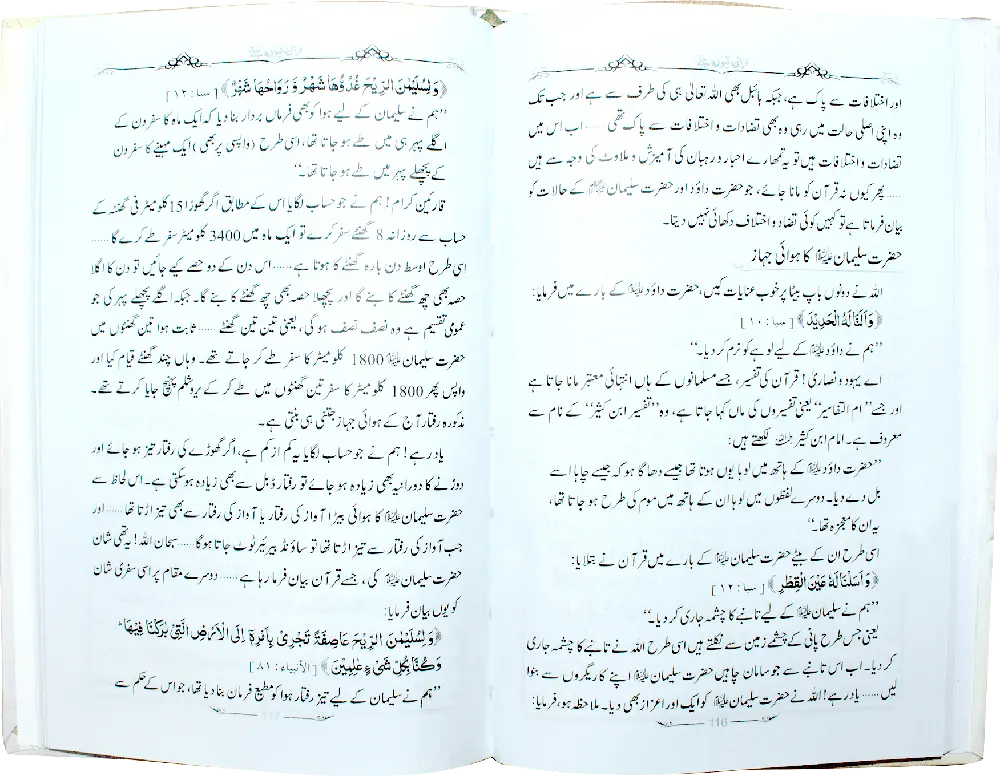 اور اختلافات سے پاک ہے، جبکہ بائبل بھی اللہ تعالیٰ ہی کی طرف سے ہے اور جب تک
وہ اپنی اصلی حالت میں رہی وہ بھی تضادات و اختلافات سے پاک تھی...... اب اس میں
تضادات و اختلافات ہیں تو یہ تمھارے احبار و رہبان کی آمیزش و ملاوٹ کی وجہ سے ہیں
...... پھر کیوں نہ قرآن کو مانا جائے، جو حضرت داؤد اور حضرت سلیمان علیہما السلام کے حالات کو
بیان فرماتا ہے تو کہیں کوئی تضاد و اختلاف دکھائی نہیں دیتا۔
حضرت سلیمان علیہ السلام کا ہوائی جہاز
اللہ نے دونوں باپ بیٹا پر خوب عنایات کیں، حضرت داؤد علیہ السلام کے بارے میں فرمایا:
﴿وَاَلَنَّا لَهُ الْحَدِيْدَ﴾ [سبا: ١٠]
’’ہم نے داؤد علیہ السلام کے لیے لوہے کو نرم کر دیا۔‘‘
اے یہود و نصاریٰ! قرآن کی تفسیر، جسے مسلمانوں کے ہاں انتہائی معتبر مانا جاتا ہے
اور جسے ’’ام التفاسیر‘‘ یعنی تفسیروں کی ماں کہا جاتا ہے، وہ ’’تفسیر ابن کثیر‘‘ کے نام سے
معروف ہے۔ امام ابن کثیر رحمہ اللہ لکھتے ہیں:
’’حضرت داؤد علیہ السلام کے ہاتھ میں لوہا یوں ہوتا تھا جیسے دھاگا ہو کہ جیسے چاہا اسے
بل دے دیا۔ دوسرے لفظوں میں لوہا ان کے ہاتھ میں موم کی طرح ہو جاتا تھا،
یہ ان کا معجزہ تھا۔‘‘
اسی طرح ان کے بیٹے حضرت سلیمان علیہ السلام کے بارے میں قرآن نے بتلایا:
﴿وَاَسَلْنَا لَهٗ عَيْنَ الْقِطْرِ﴾ [سبا: ١٢]
’’ہم نے سلیمان علیہ السلام کے لیے تانبے کا چشمہ جاری کر دیا۔‘‘
یعنی جس طرح پانی کے چشمے زمین سے نکلتے ہیں اسی طرح اللہ نے تانبے کا چشمہ جاری
کر دیا۔ اب اس تانبے سے جو سامان چاہیں حضرت سلیمان علیہ السلام اپنے کاریگروں سے بنوا
لیں...... یاد رہے! اللہ نے حضرت سلیمان علیہ السلام کو ایک اور اعزاز بھی دیا۔ ملاحظہ ہو، فرمایا:
116
﴿وَلِسُلَيْمٰنَ الرِّيْحَ غُدُوُّهَا شَهْرٌ وَّرَوَاحُهَا شَهْرٌ﴾ [سبا: ١٢]
’’ہم نے سلیمان کے لیے ہوا کو بھی فرماں بردار بنا دیا کہ ایک ماہ کا سفر دن کے
اگلے پہر ہی میں طے ہو جاتا تھا، اسی طرح (واپسی پر بھی) ایک مہینے کا سفر دن
کے پچھلے پہر میں طے ہو جاتا تھا۔‘‘
قارئین کرام! ہم نے جو حساب لگایا اس کے مطابق اگر گھوڑا 15 کلو میٹر فی گھنٹے کے
حساب سے روزانہ 8 گھنٹے سفر کرے تو ایک ماہ میں 3400 کلو میٹر سفر طے کرے گا......
اسی طرح اوسط دن بارہ گھنٹے کا ہوتا ہے...... اس دن کے دو حصے کیے جائیں تو دن کا اگلا
حصہ بھی چھ گھنٹے کا بنے گا اور پچھلا حصہ بھی چھ گھنٹے کا بنے گا۔ جبکہ اگلے پچھلے پہر کی جو
عمومی تقسیم ہے وہ نصف نصف ہو گی، یعنی تین تین گھنٹے...... ثابت ہوا تین گھنٹوں میں
حضرت سلیمان علیہ السلام 1800 کلو میٹر کا سفر طے کر جاتے تھے۔ وہاں چند گھنٹے قیام کیا اور
واپس پھر 1800 کلو میٹر کا سفر تین گھنٹوں میں طے کر کے یروشلم پہنچ جایا کرتے تھے۔
مذکورہ رفتار آج کے ہوائی جہاز جتنی ہی بنتی ہے۔
یاد رہے! ہم نے جو حساب لگایا یہ کم از کم ہے، اگر گھوڑے کی رفتار تیز ہو جائے اور
دوڑنے کا دورانیہ بھی زیادہ ہو جائے تو رفتار ڈبل سے بھی زیادہ ہو سکتی ہے۔ اس لحاظ سے
حضرت سلیمان علیہ السلام کا ہوائی بیڑا آواز کی رفتار یا آواز کی رفتار سے بھی تیز اڑتا تھا...... اور
جب آواز کی رفتار سے تیز اڑتا تھا تو ساؤنڈ بیریئر ٹوٹ جاتا ہو گا...... سبحان اللہ! یہ تھی شان
حضرت سلیمان علیہ السلام کی، جسے قرآن بیان فرما رہا ہے...... دوسرے مقام پر اسی سفری شان
کو یوں بیان فرمایا:
﴿وَلِسُلَيْمٰنَ الرِّيْحَ عَاصِفَةً تَجْرِيْ بِاَمْرِهٖٓ اِلَى الْاَرْضِ الَّتِيْ بٰرَكْنَا فِيْهَا ؕ
وَكُنَّا بِكُلِّ شَيْءٍ عٰلِمِيْنَ﴾ [الأنبياء: ٨١]
’’ہم نے سلیمان کے لیے تیز رفتار ہوا کو مطیع فرمان بنا دیا تھا، جو اس کے حکم سے
117